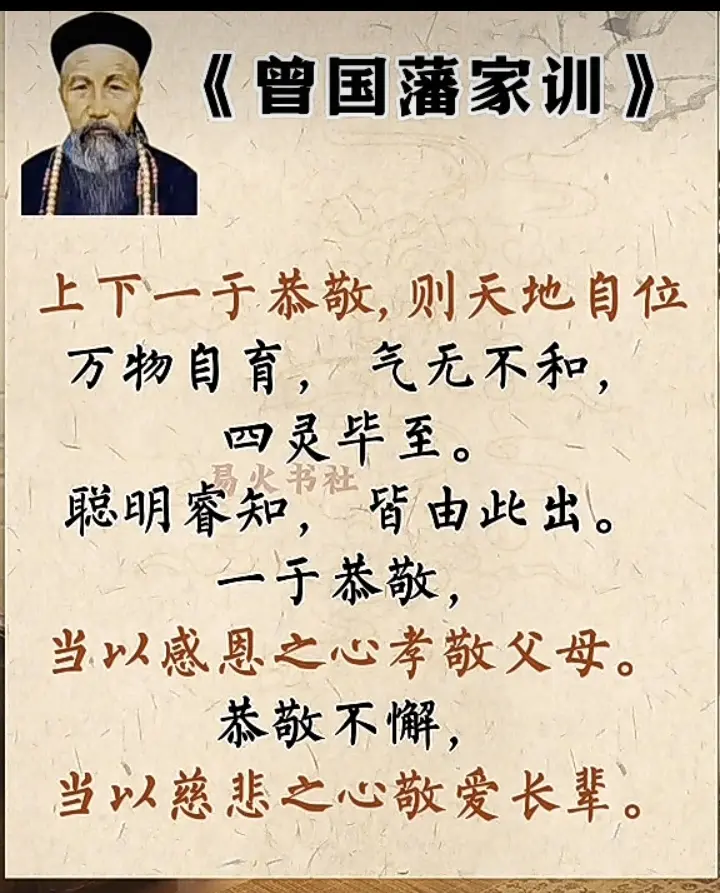 《曾国藩家训》
上下一于恭敬,则天地自位
万物自育，气无不和，
四灵毕至。
易火书社
聪明睿知，皆由此出。
一于恭敬，
当以感恩之心孝敬父母。
恭敬不懈，
当以慈悲之心敬爱长辈。